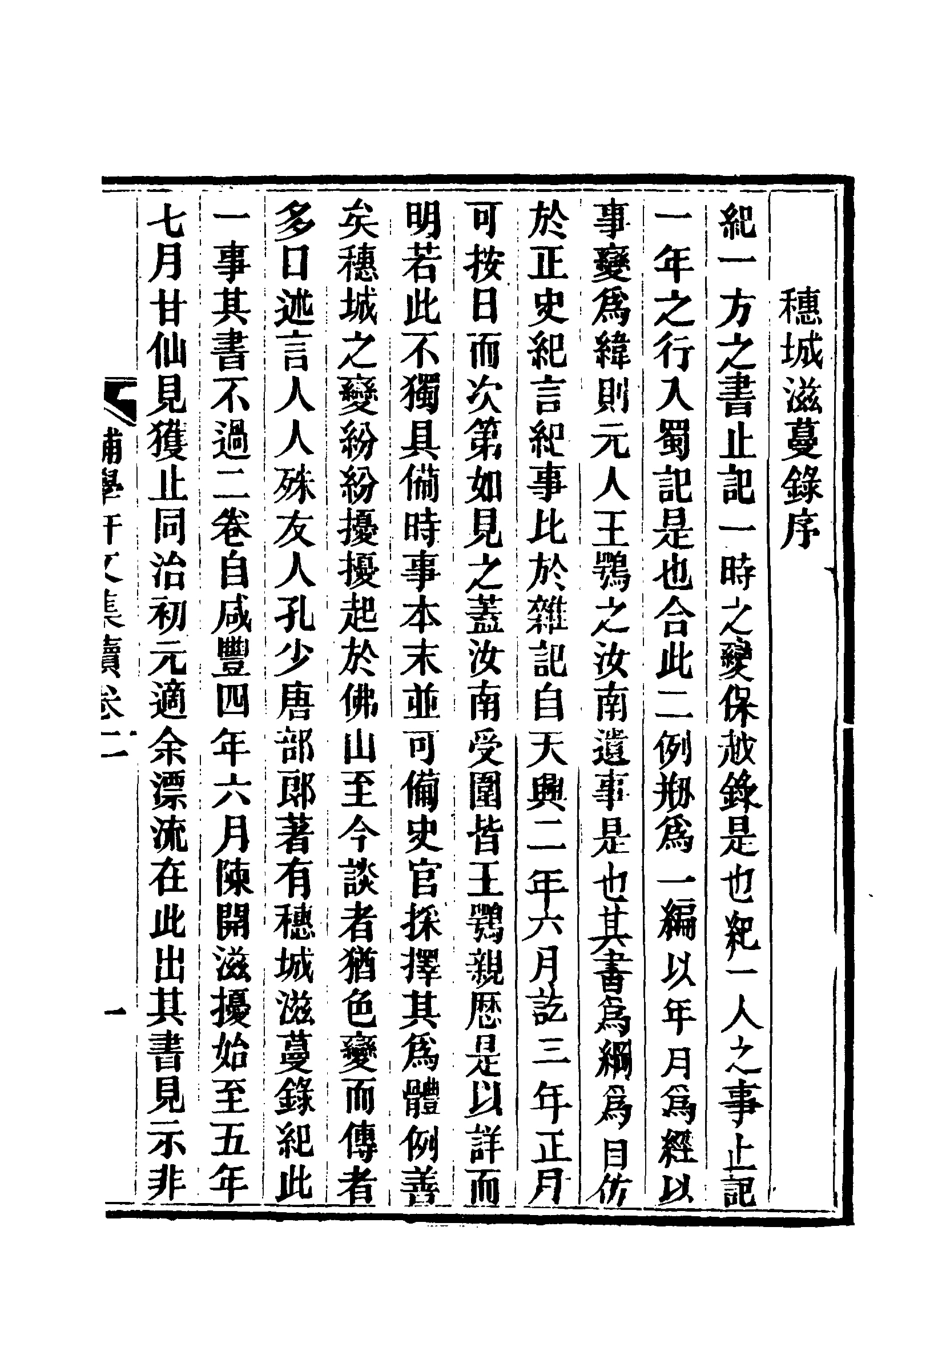 穗城滋蔓錄序
紀一方之書止記一時之變保越錄是也紀一人之事止記
一年之行入蜀記是也合此二例剏爲一編以年月爲經以
事變爲緯則元人王鶚之汝南遺事是也其書爲綱爲目仿
於正史紀言紀事比於雜記自天興二年六月訖三年正月
可按日而次第如見之蓋汝南受圍皆王鶚親歷是以詳而
明若此不獨具備時事本末並可備史官採擇其爲體例善
矣穗城之變紛紛擾擾起於佛山至今談者猶色變而傳者
多口述言人人殊友人孔少唐部郎著有穗城滋蔓錄紀此
一事其書不過二卷自咸豐四年六月陳開滋擾始至五年
七月甘仙見獲止同治初元適余漂流在此出其書見示非
補學軒文集續卷二
一